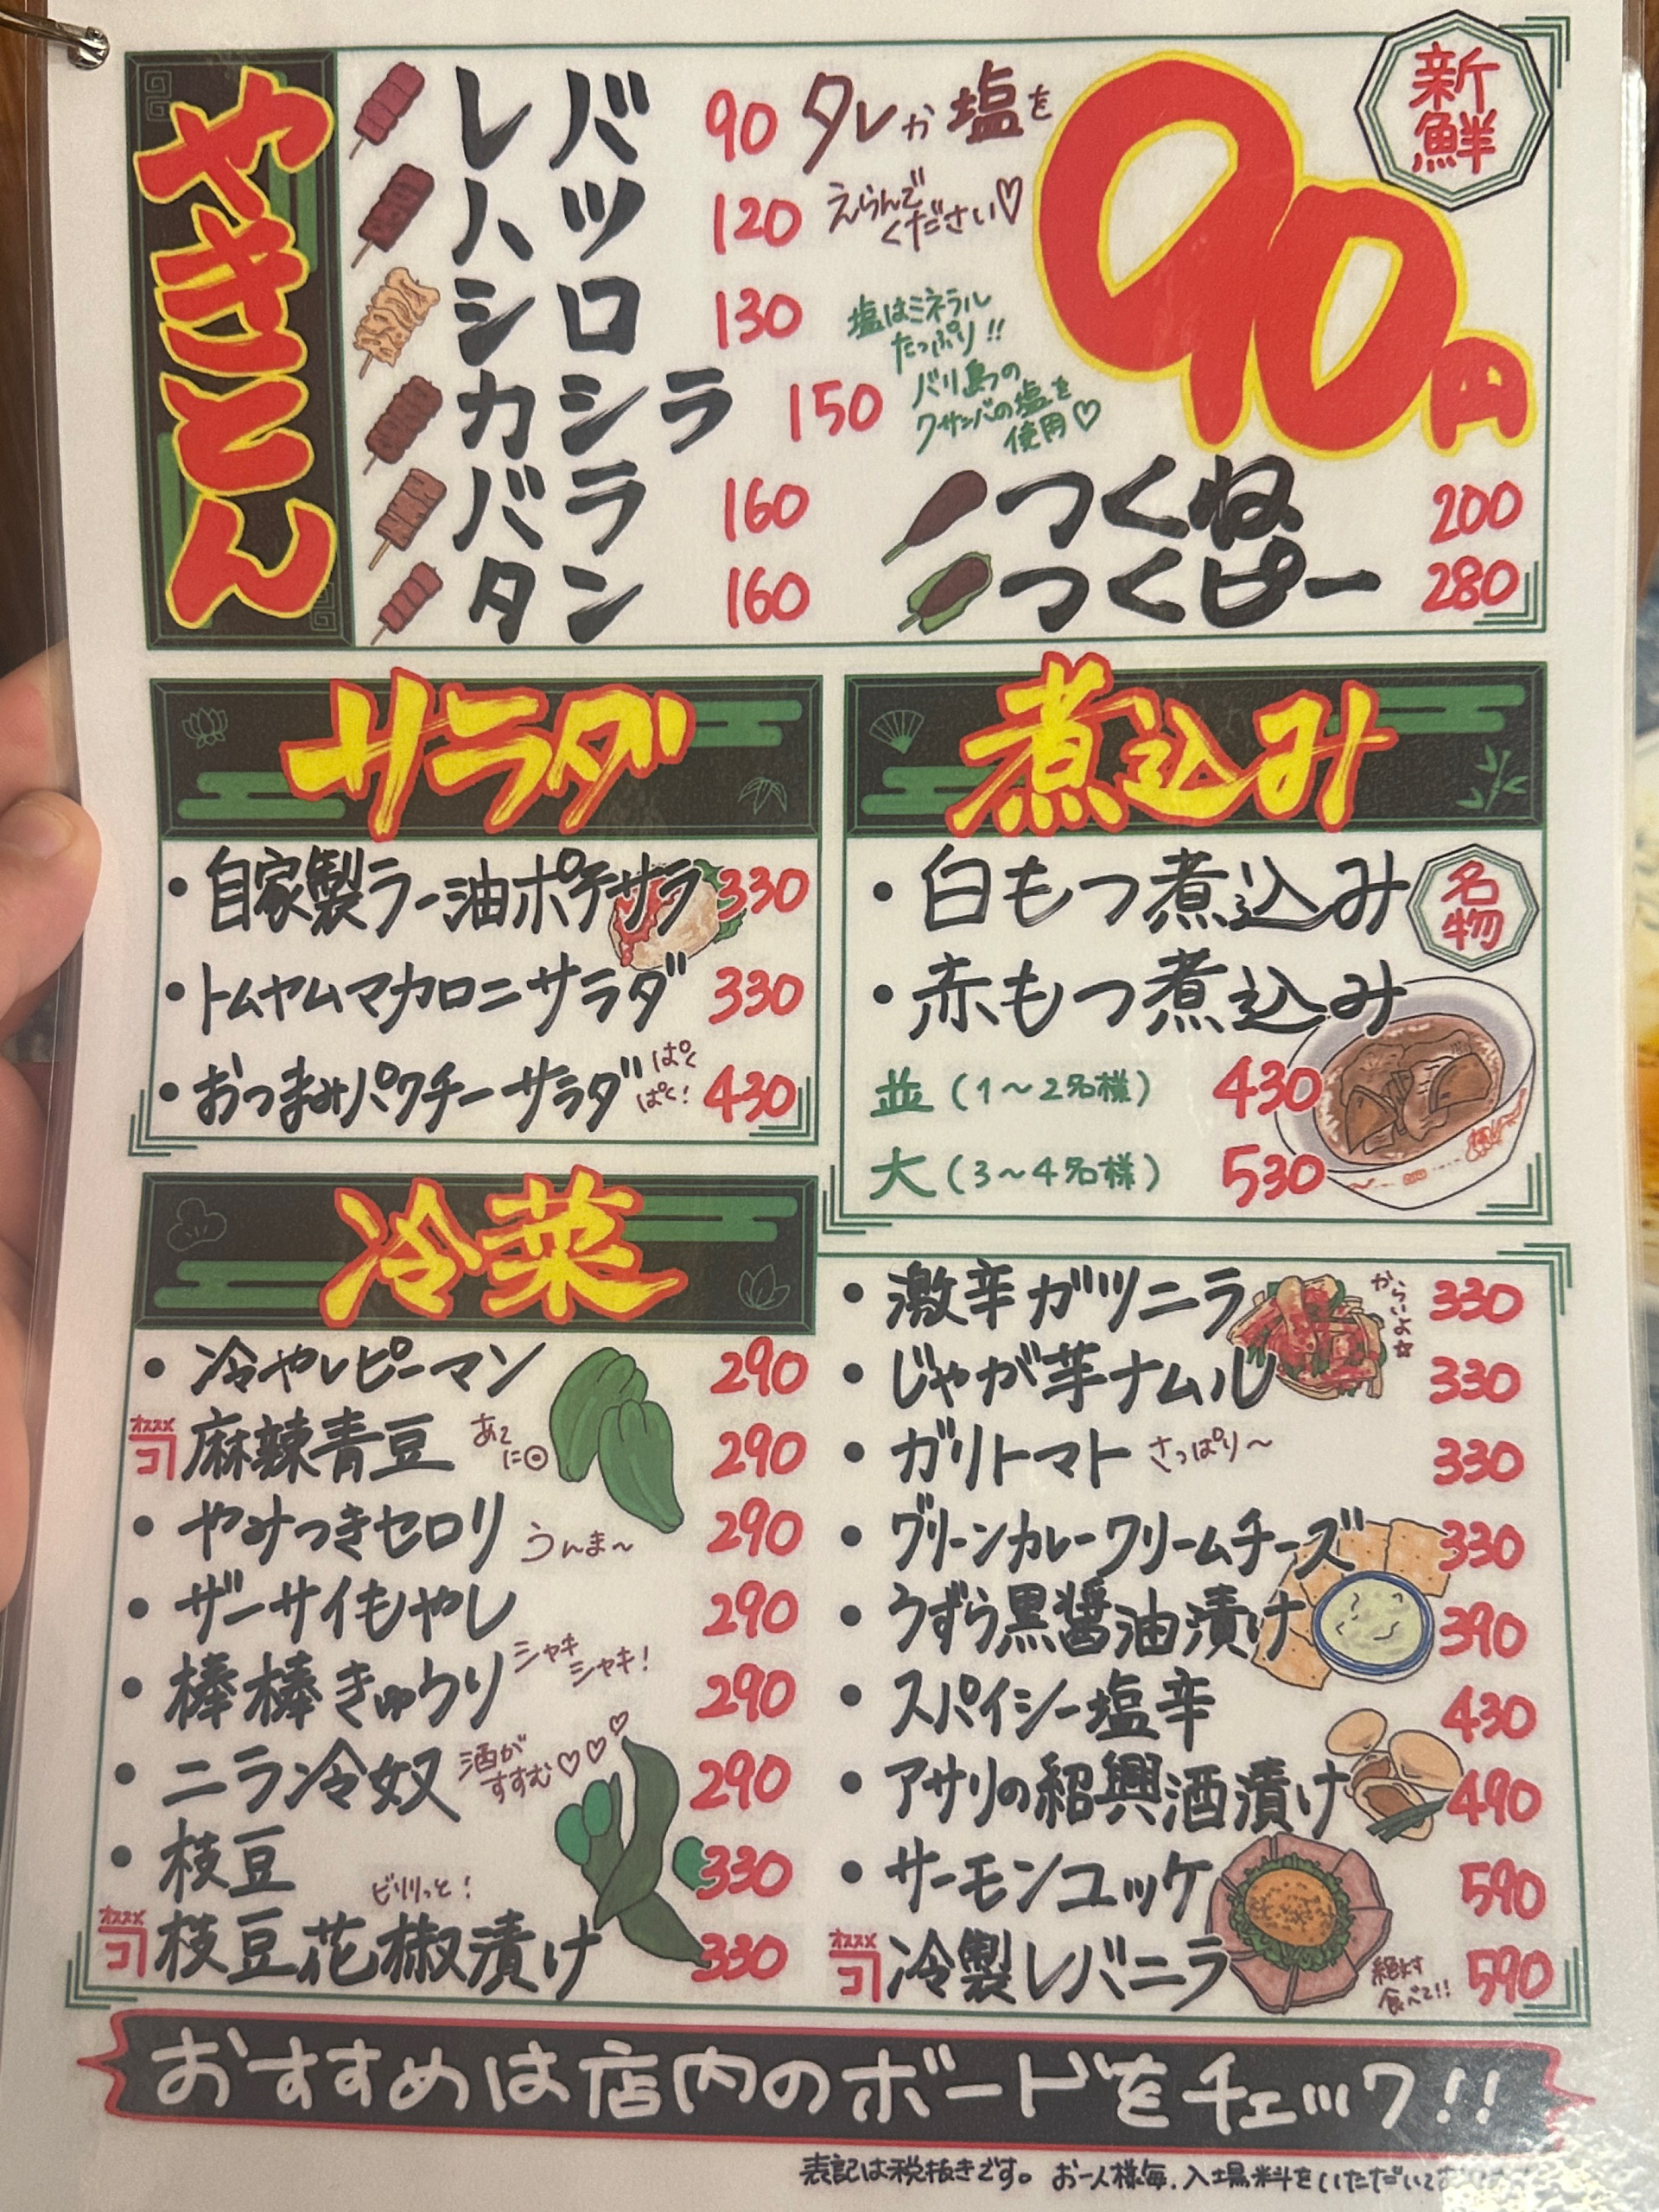 やきとん
新鮮
90円
レバ 90
ハツ 120
シロ 130
カシラ 150
バラ 160
タン 160
タレか塩を
えらんで
ください♡
塩はミネラル
たっぷり!!
バリ島の
クサンバの塩を
使用♡
つくね 200
つくピー 280
サラダ
・自家製ラー油ポテサラ 330
・トムヤムマカロニサラダ 330
・おつまみパクチーサラダ ぱく
ぱく! 430
煮込み
・白もつ煮込み 名物
・赤もつ煮込み
並(1~2名様) 430
大(3~4名様) 530
冷菜
・冷やしピーマン 290
オススメ
コ 麻辣青豆 あて
に◎ 290
・やみつきセロリ うんま~ 290
・ザーサイもやし 290
・棒棒きゅうり シャキ
シャキ! 290
・ニラ冷奴 酒が
すすむ♡♡♡ 290
・枝豆 330
オススメ
コ 枝豆花椒漬け ビリリっと! 330
・激辛ガツニラ からいよ☆ 330
・じゃが芋ナムル 330
・ガリトマト さっぱり~ 330
・グリーンカレークリームチーズ 330
・うずら黒醤油漬け 390
・スパイシー塩辛 430
・アサリの紹興酒漬け 490
・サーモンユッケ 590
オススメ
コ 冷製レバニラ 絶対
食べて!! 590
おすすめは店内のボードをチェック!!
表記は税抜きです。お一人様毎、入場料をいただいて